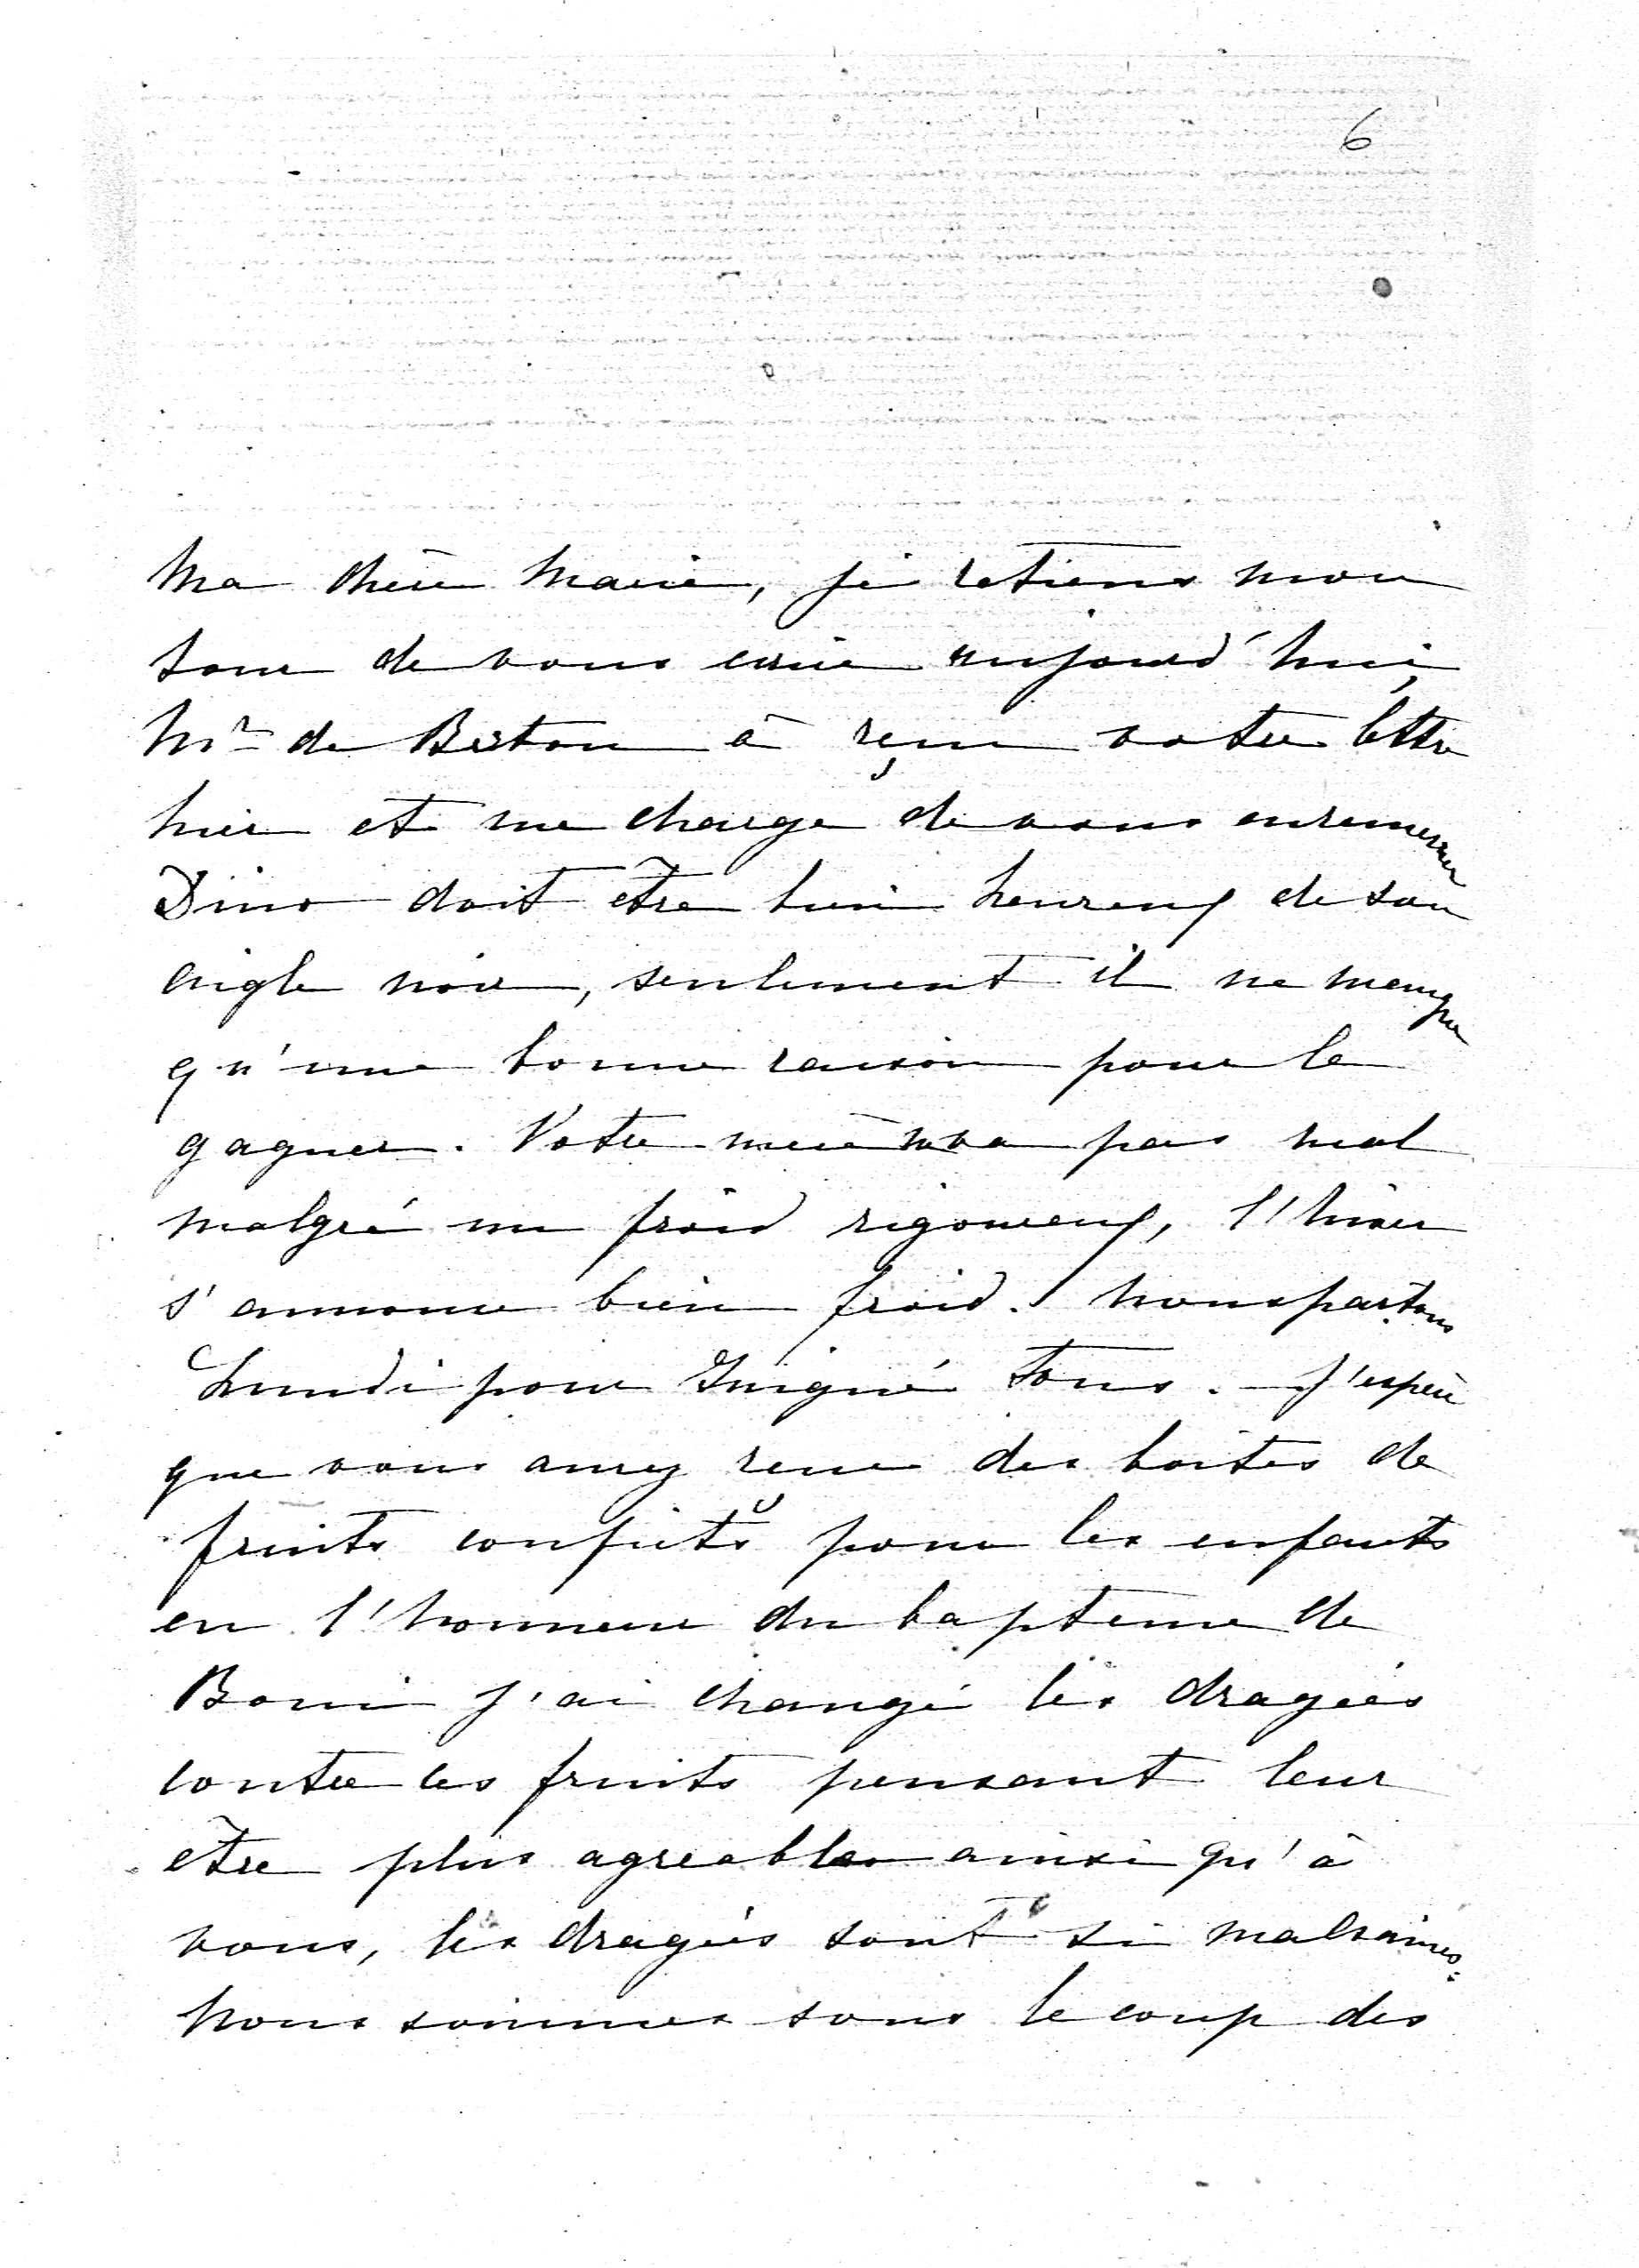 6
Ma chère Marie, je retiens mon
tour de vous écrire aujourd'hui,
Mr de Biston a reçu votre lettre
hier et me charge de vous en remercier
Dino doit être bien heureux de son
aigle noir, seulement il ne manque
qu'une bonne raison pour le
gagner. Votre mère va pas mal
malgré un froid rigoureux, l'hiver
s'annonce bien froid. nous partons
Lundi pour tous. J'espère
que vous aurez reçu des boites de
fruits confits pour les enfants
en l'honneur du bapteme de
Boni j'ai changé les dragées
contre ces fruits pensant leur
être plus agreables ainsi qu'à
vous, les dragées sont si malsaines.
Nous sommes sous le coup des